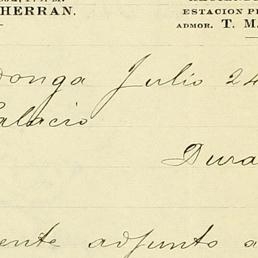 HERRAN.
ESTACION P
ADMOR. T. M
onga Julio 24
alacio
Dura
ente adjunto a